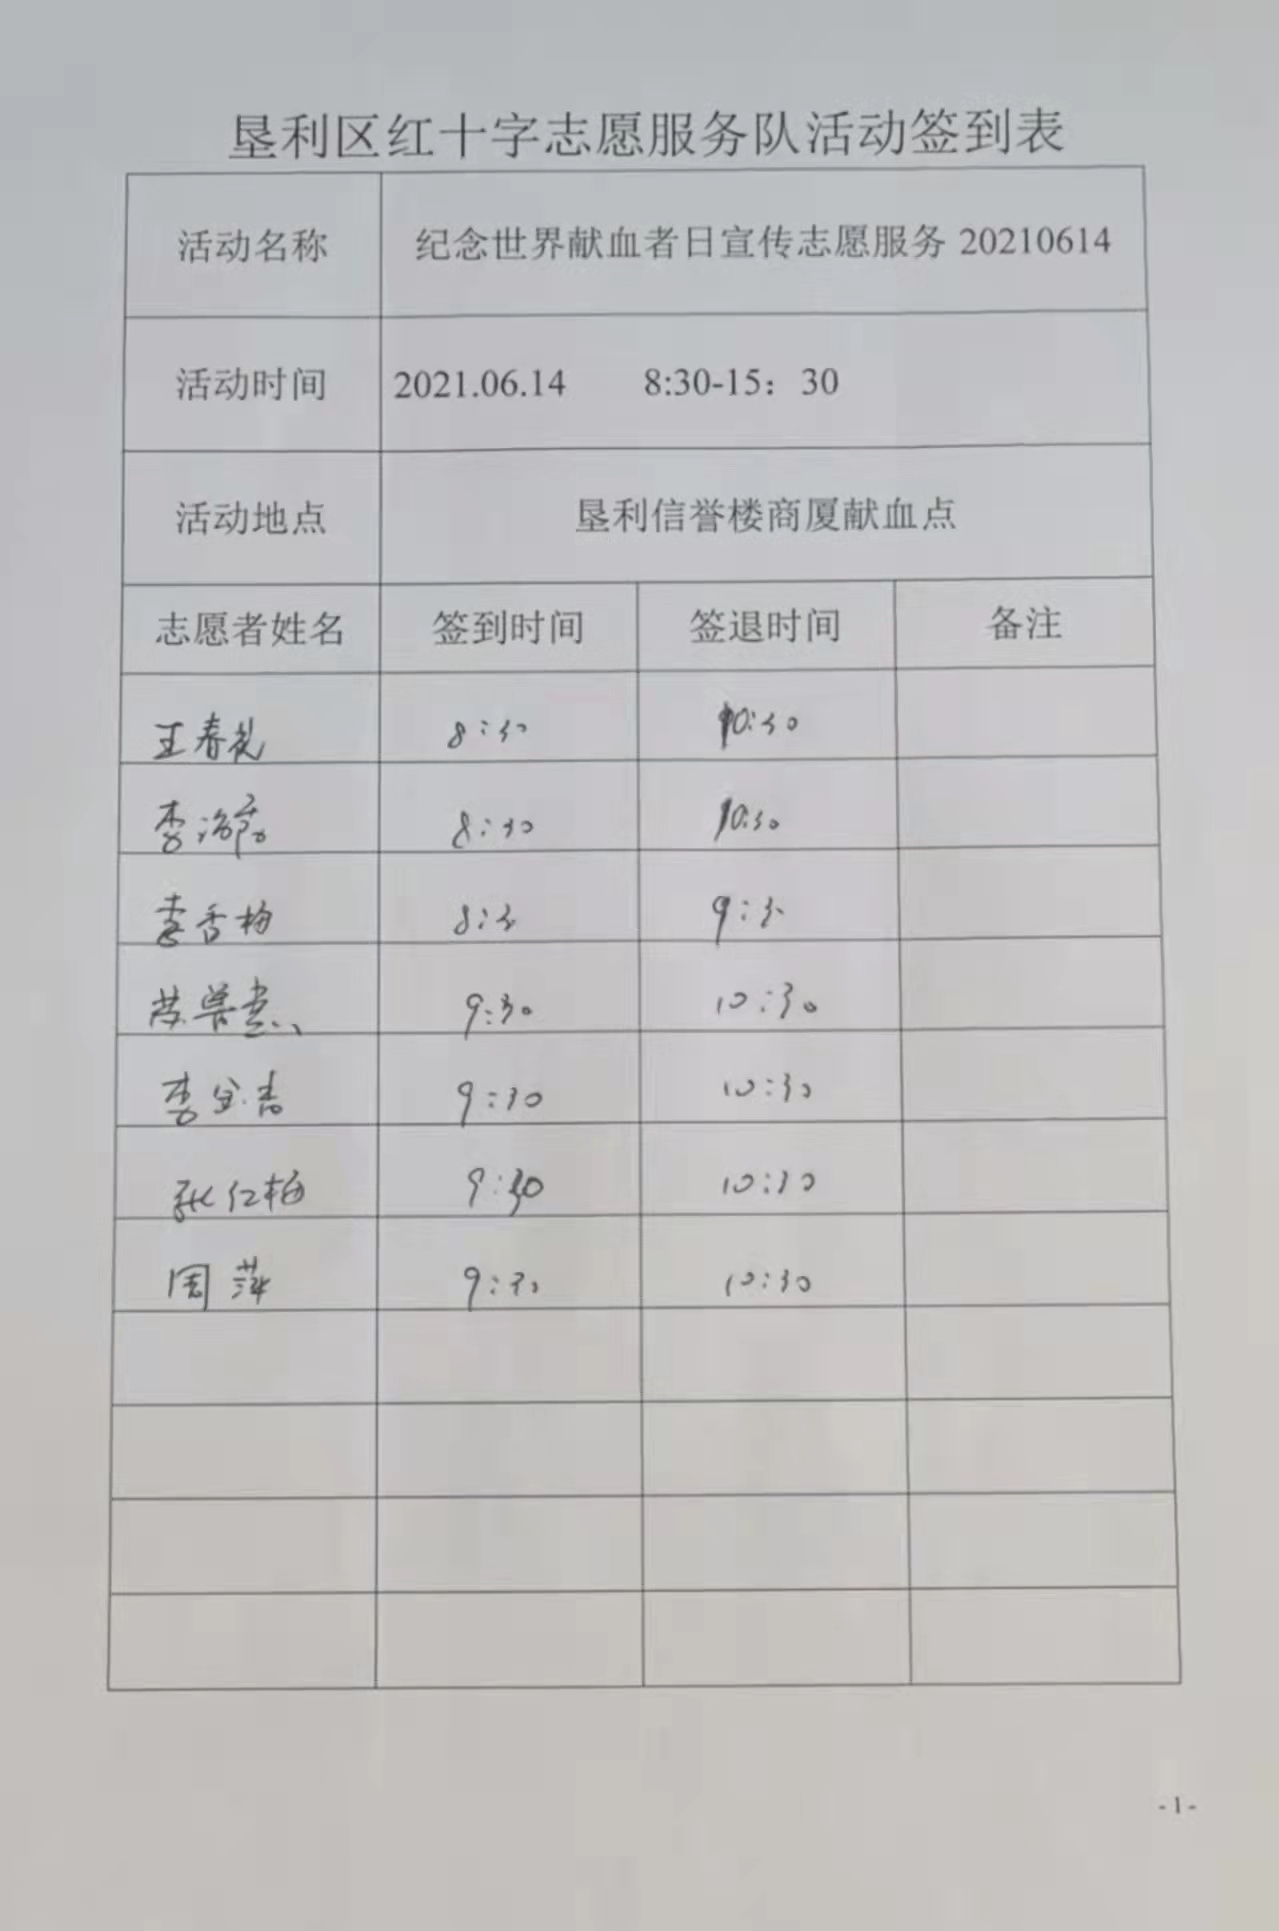 垦利区红十字志愿服务队活动签到表
活动名称 纪念世界献血者日宣传志愿服务 20210614
活动时间 2021.06.14 8:30-15：30
活动地点 垦利信誉楼商厦献血点
志愿者姓名 签到时间 签退时间 备注
王春礼 8:30 10:30
李 8:30 10:30
李香梅 8:30 9:30
苏 9:30 10:30
李 9:30 10:30
张红梅 9:30 10:30
周萍 9:30 10:30
- 1 -